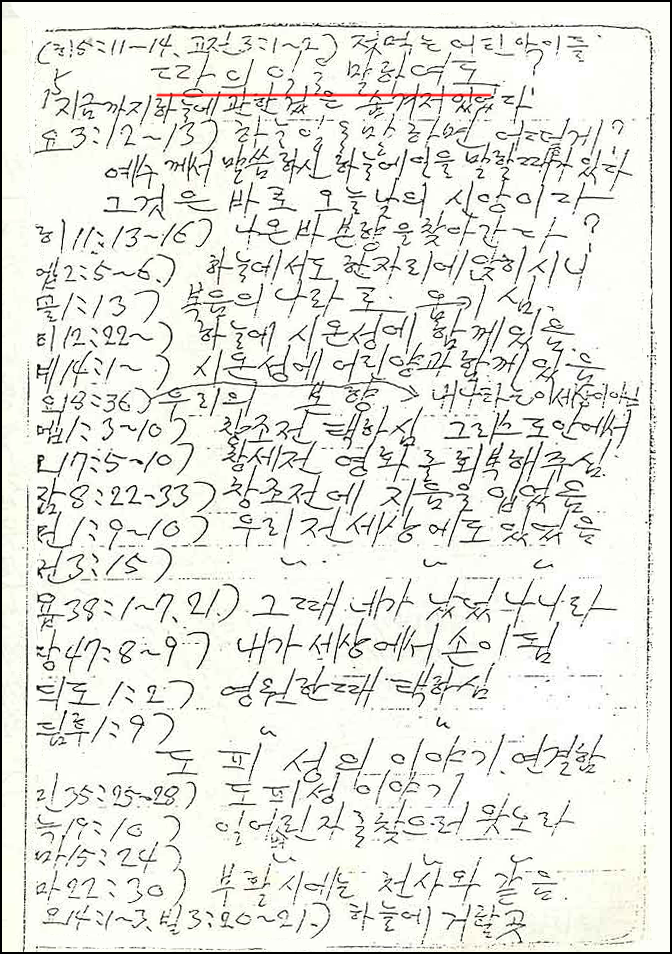 (히5:11~14, 고전3:1~2) 젖먹는 어린 아이들
15 땅의 일을 말하여도 ?
지금까지 하늘에 관한 것은 숨겨져 있었다
요3:12~13) 하늘 일을 말하면 어떻게?
예수께서 말씀하신 하늘에 언을 말할 때가 있다
그것은 바로 오늘날의 신앙이다
히11:13~16) 나온바 본향을 찾아간다 ?
엡2:5~6) 하늘에서도 한자리에 앉히시니
골1:13) 복음의 나라로 옮기심
히12:22~) 하늘에 시온성에 함께 있음
계14:1~) 시온성에 어린양과 함께 있음
요18:36) 우리의 본향 → 내 나라는 이 세상이 아님
엡1:3~10) 창조전 택하심 그리스도 안에서
요17:5~10) 창세전 영화를 회복해 주심
잠8:22~33) 창조전에 지음을 입었음
전1:9~10) 우리 전 세상에도 있었음
전3:15) 〃 〃 〃
욥38:1~7, 21) 그때 네가 났었나니라
창47:8~9) 내가 세상에서 손이 됨
듸도1:2) 영원한 때 택하심
딤후1:9) 〃 〃
도피성의 이야기 연결함
민35:25~28) 도피성 이야기
눅19:10) 잃어버린 자를 찾으러 왔노라
마15:24) 〃 〃 〃
마22:30) 부활시에는 천사와 같음
요14:1~3, 빌3:20~21) 하늘에 거할 곳